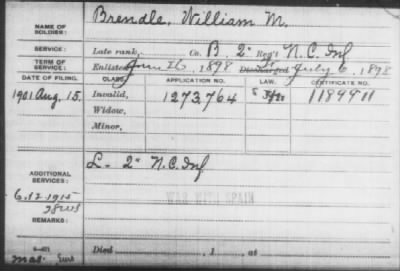 NAME OF SOLDIER: Brendle, William M.
SERVICE: Late rank, Co. B, 2" Reg't N.C. Inf
TERM OF SERVICE: Enlisted 1898 Discharged July 6, 1898
DATE OF FILING. CLASS. APPLICATION NO. LAW. CERTIFICATE NO.
1901 Aug. 15. Invalid, 1273764
Widow,
Minor,
ADDITIONAL SERVICES: L- 2" N.C. Inf
WAR WITH SPAIN
REMARKS:
Died , 1 , at